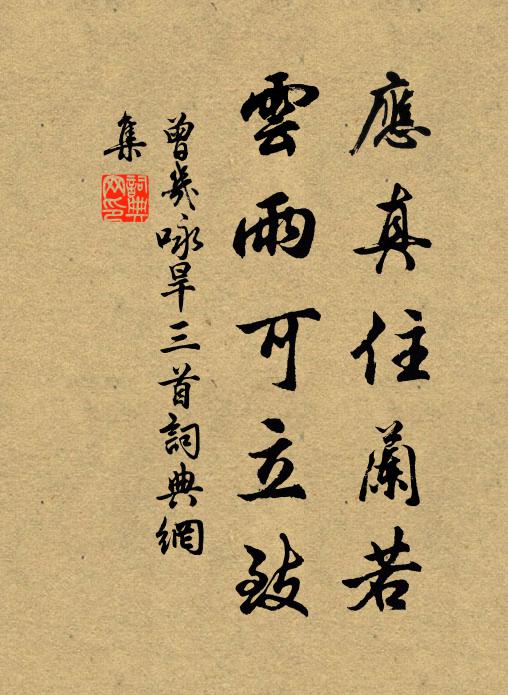 應真住蘭若
雲雨可立致
曾幾咏旱三首詞典網
集
詞典网印